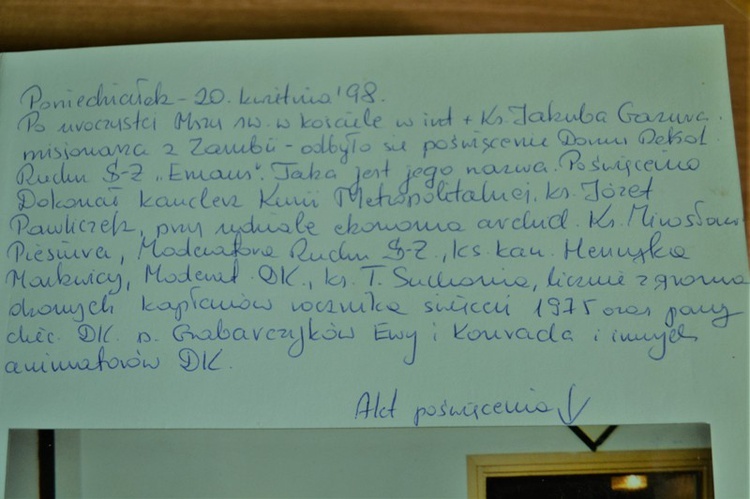 Poniedziałek - 20. kwietnia '98.
Po uroczystej Mszy św. w kościele w int + Ks. Jakuba Gazura
misjonarza z Zambii - odbyło się poświęcenie Domu Rekol
Ruchu Ś-Ż "Emaus". Taka jest jego nazwa. Poświęcenia
Dokonał kanclerz Kurii Metropolitalnej, ks. Józef
Pawliczek, przy udziale ekonoma archid. Ks. Mirosława
Piesiura, Moderatora Ruchu Ś-Ż., ks. kan. Henryka
Markwicy, Moderat. DK., ks. T. Suchonia, licznie zgroma
dzonych kapłanów rocznika święceń 1975 oraz pary
diec. DK. p. Grabarczyków Ewy i Konrada i innych
animatorów DK.
Akt poświęcenia ↓